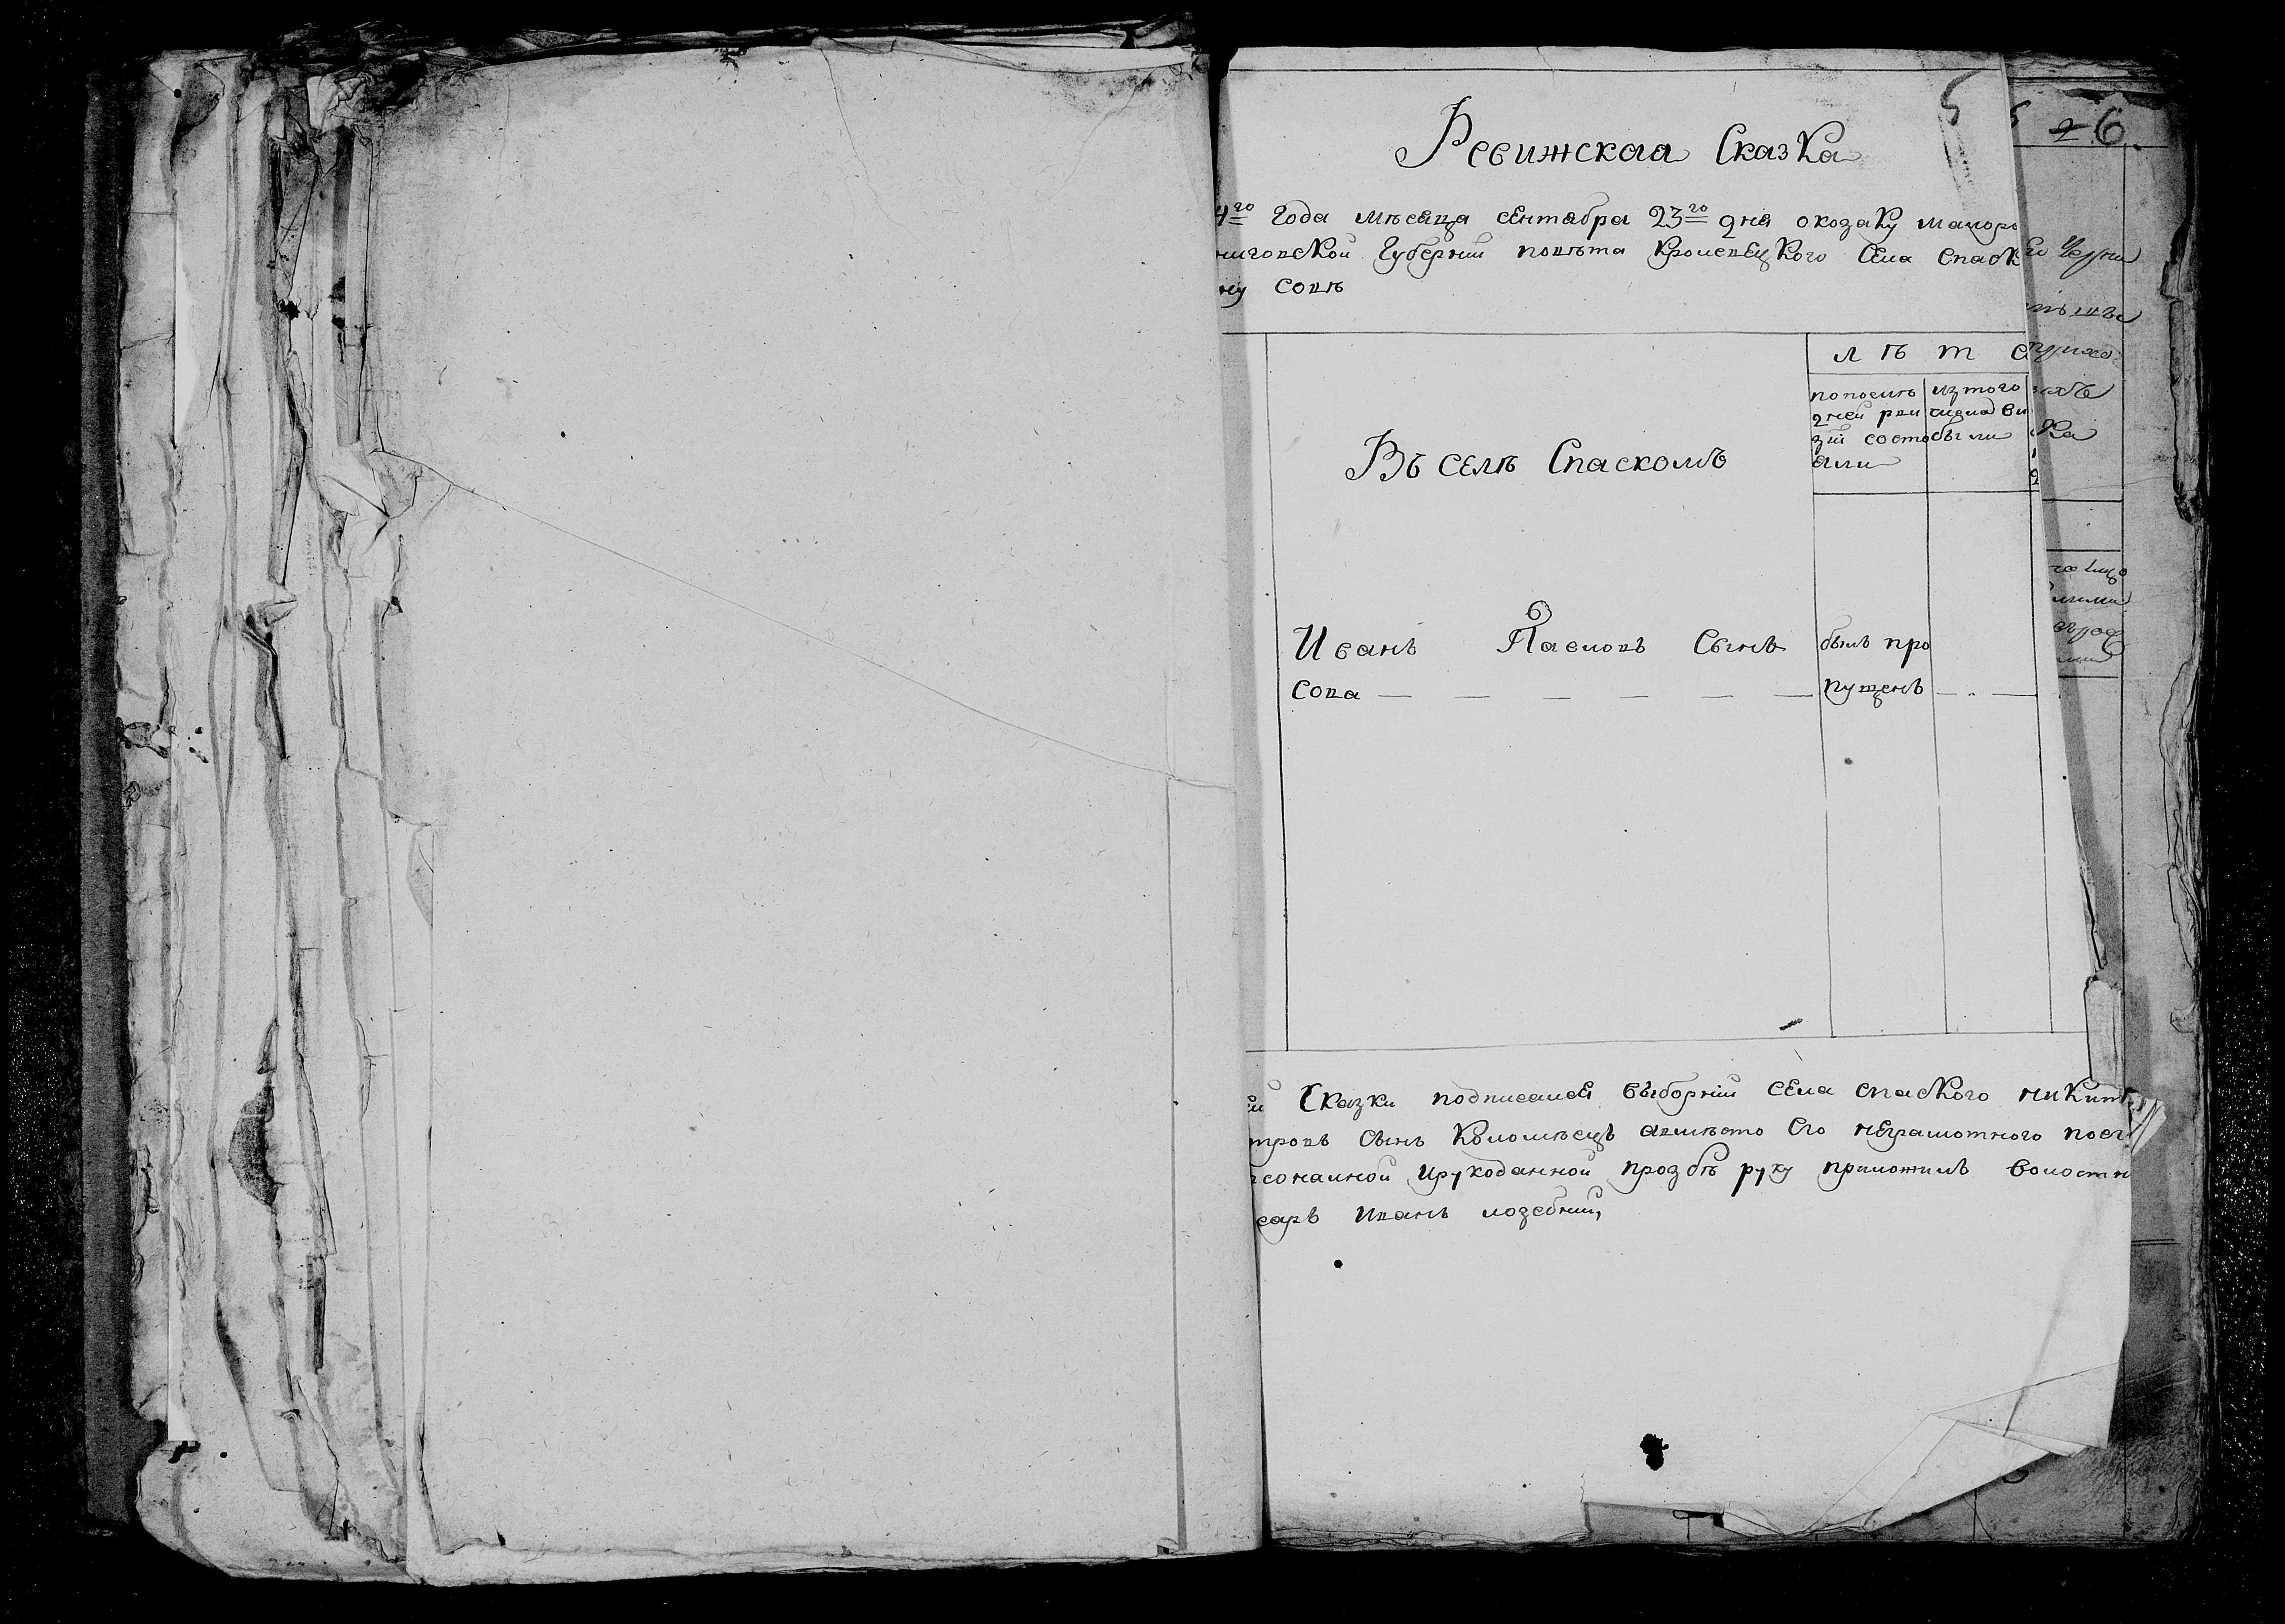 5
6
Ревижская Сказка
4го года мѣсяца сентабра 23го дня о козаку малоро
ниговской Губернии повѣта Кролевецкого Села Спаск
ну Совѣ
Лѣта
Въ селѣ Спаскомъ
по после
дней реви
зіи состо
али
из того
числа вы
были
6
Иванъ Павловъ Сынъ
Сова
былъ про
пущенъ
Сказки подписался выборній села спаского никит
тровъ Сынъ Коломѣецъ авмѣсто его неграмотного по ег
сональной ирукоданной прозбѣ руку приложилъ волостн
сарь Иванъ лозебний,